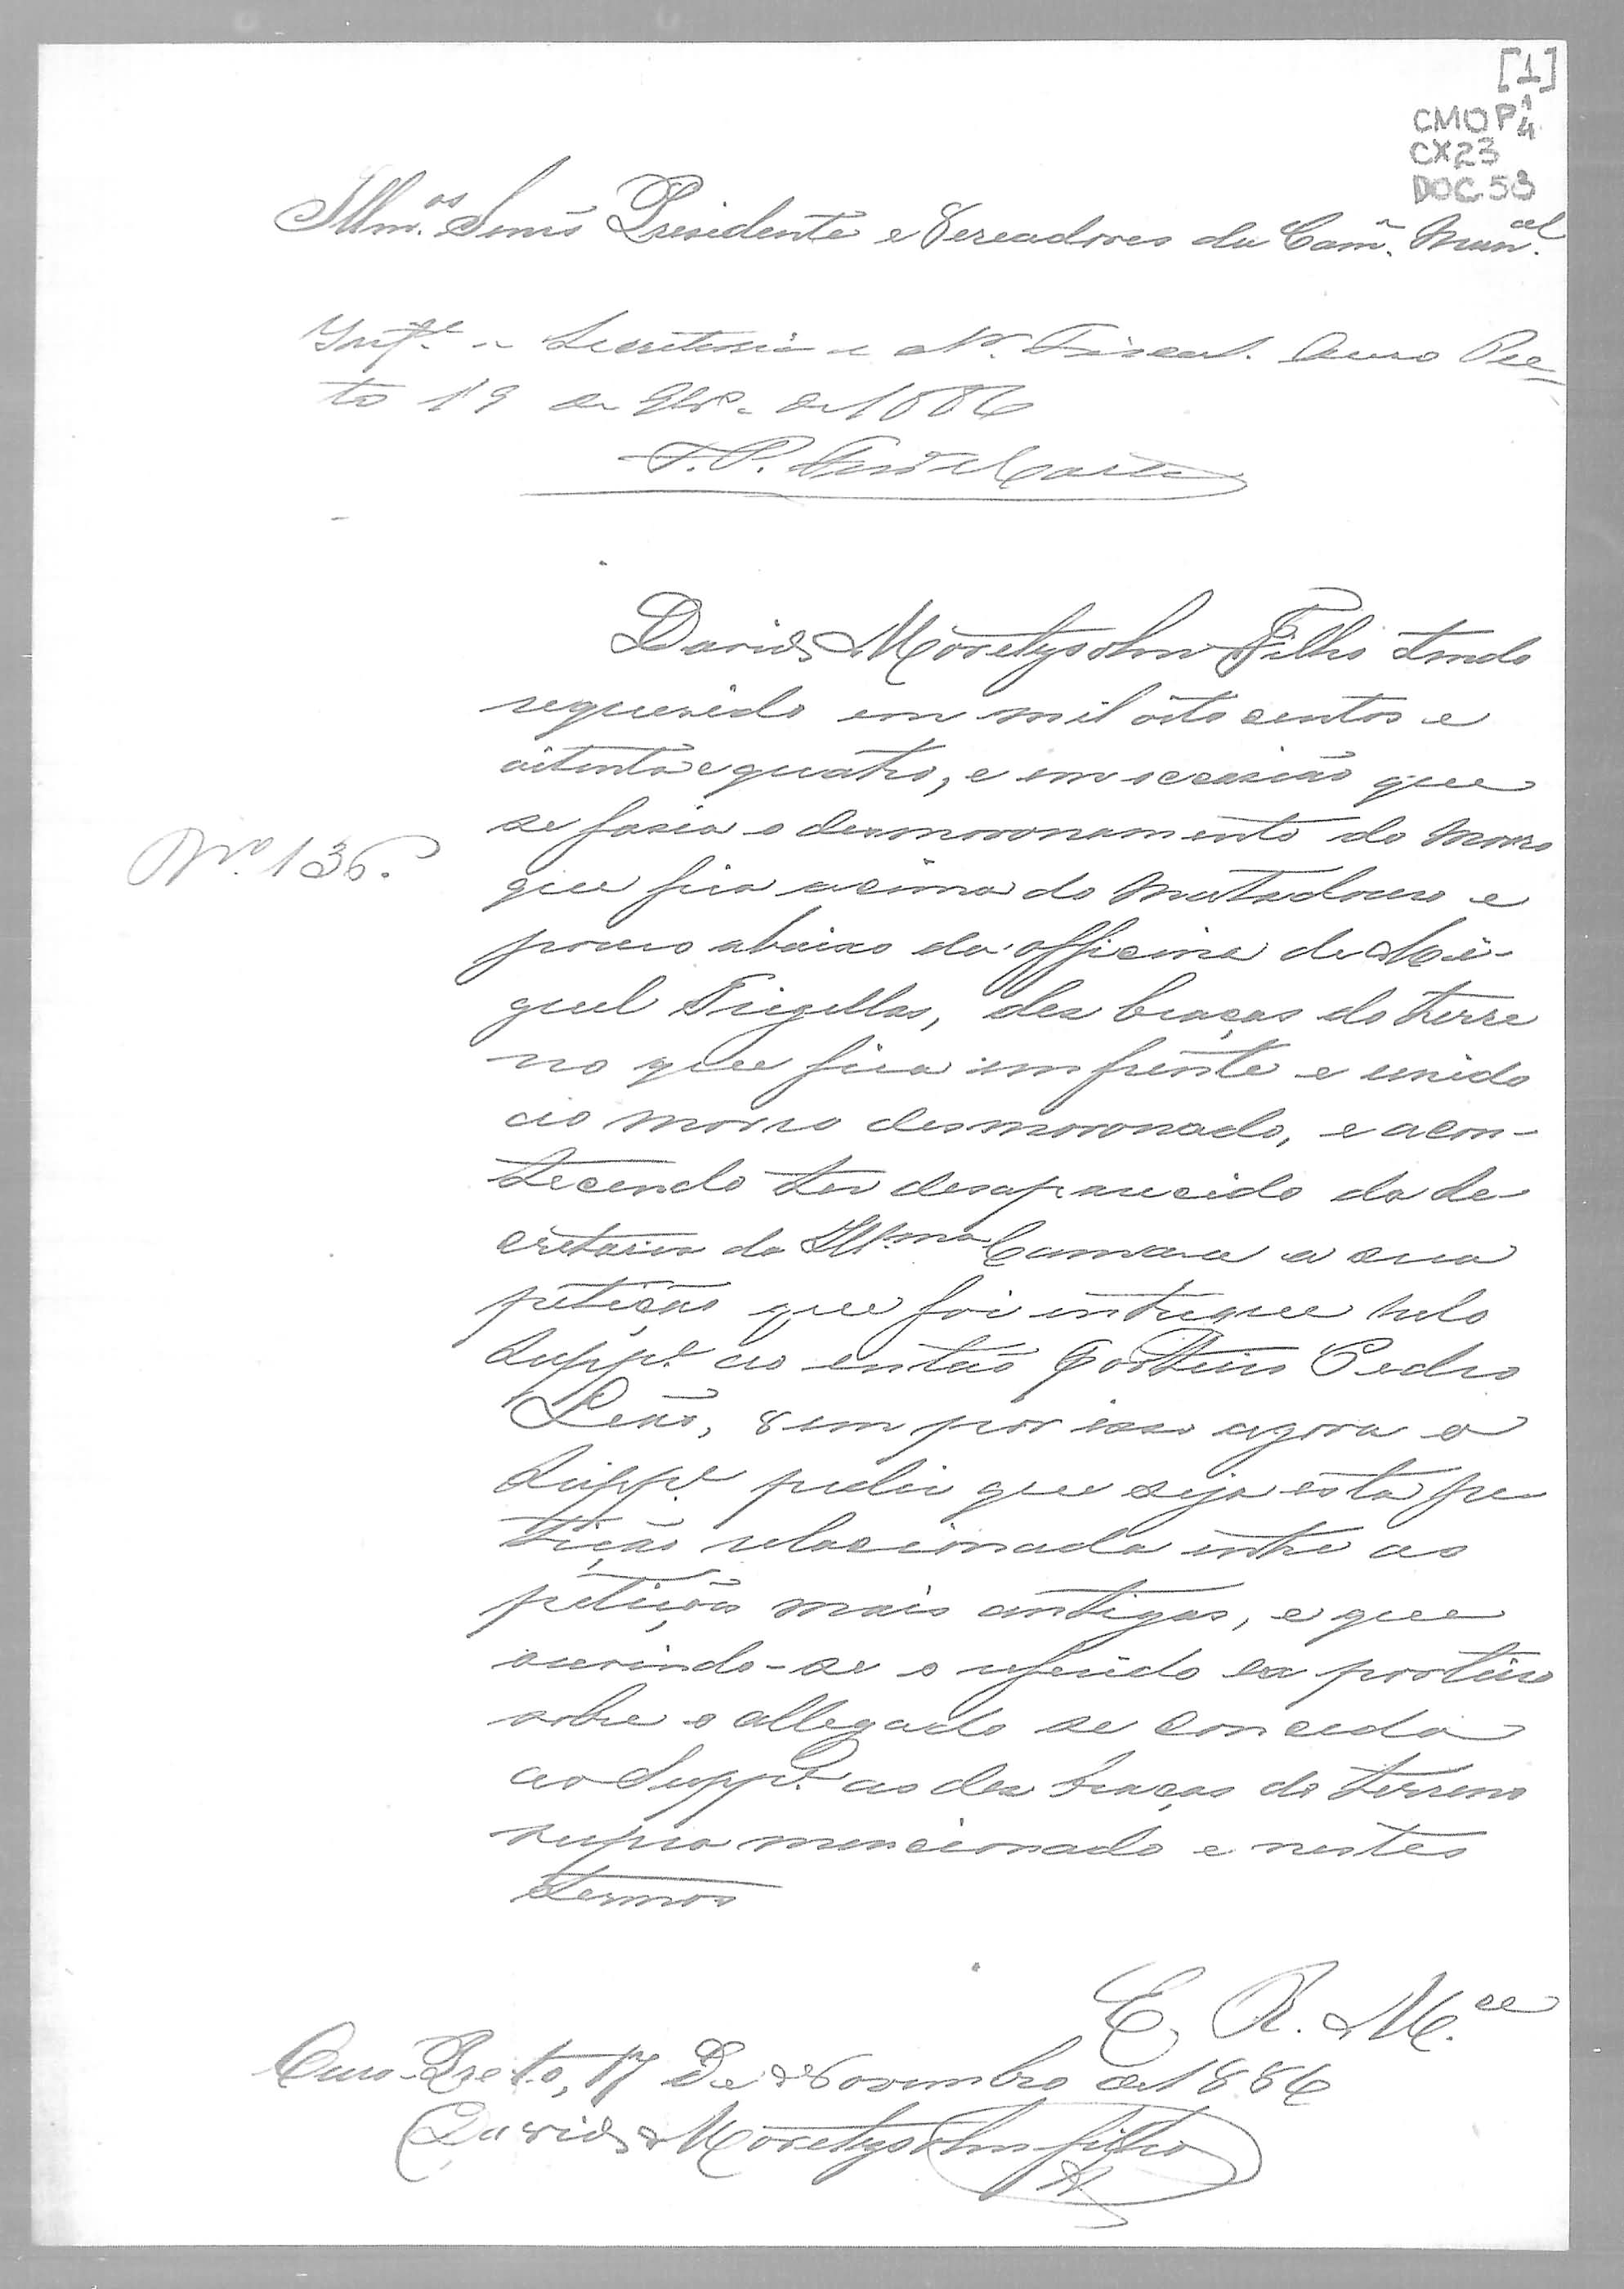 [1]
CMOP 1/4
CX23
DOC.53
Illm.os Snrs Presidente e Vereadores da Cam.ª Mun.al
Inf.e a Secretaria e o Sr. Fiscal. Ouro Pre-
to 19 de 9br.o de 1886
David Moretzsohn Filho tendo
requerido em mil oito centos e
oitenta e quatro, e em occasião que
se fasia o desmoronamento do morro
Nº 136.
que fica acima do Matadouro e
pouco abaixo da officina de Mi-
guel Trigellas, dez braças do terre
no que fica em frente e unido
ao morro desmoronado, e acon-
tecendo ter desaparecido da Se-
cretaria da Ill.ma Camara a sua
petição que foi entregue pelo
Supp.e ao então Porteiro Pedro
Leão, vem por isso agora o
Supp.e pedir que seja esta pe
tição relacionada entre as
petições mais antigas, e que
ouvindo-se o referido ex porteiro
sobre o allegado se conceda
ao Supp.e as dez braças do terreno
supra mencionado e nestes
termos
E. R. M.ce
Ouro-Preto, 17 De Novembro de 1886
David Moretzsohn filho